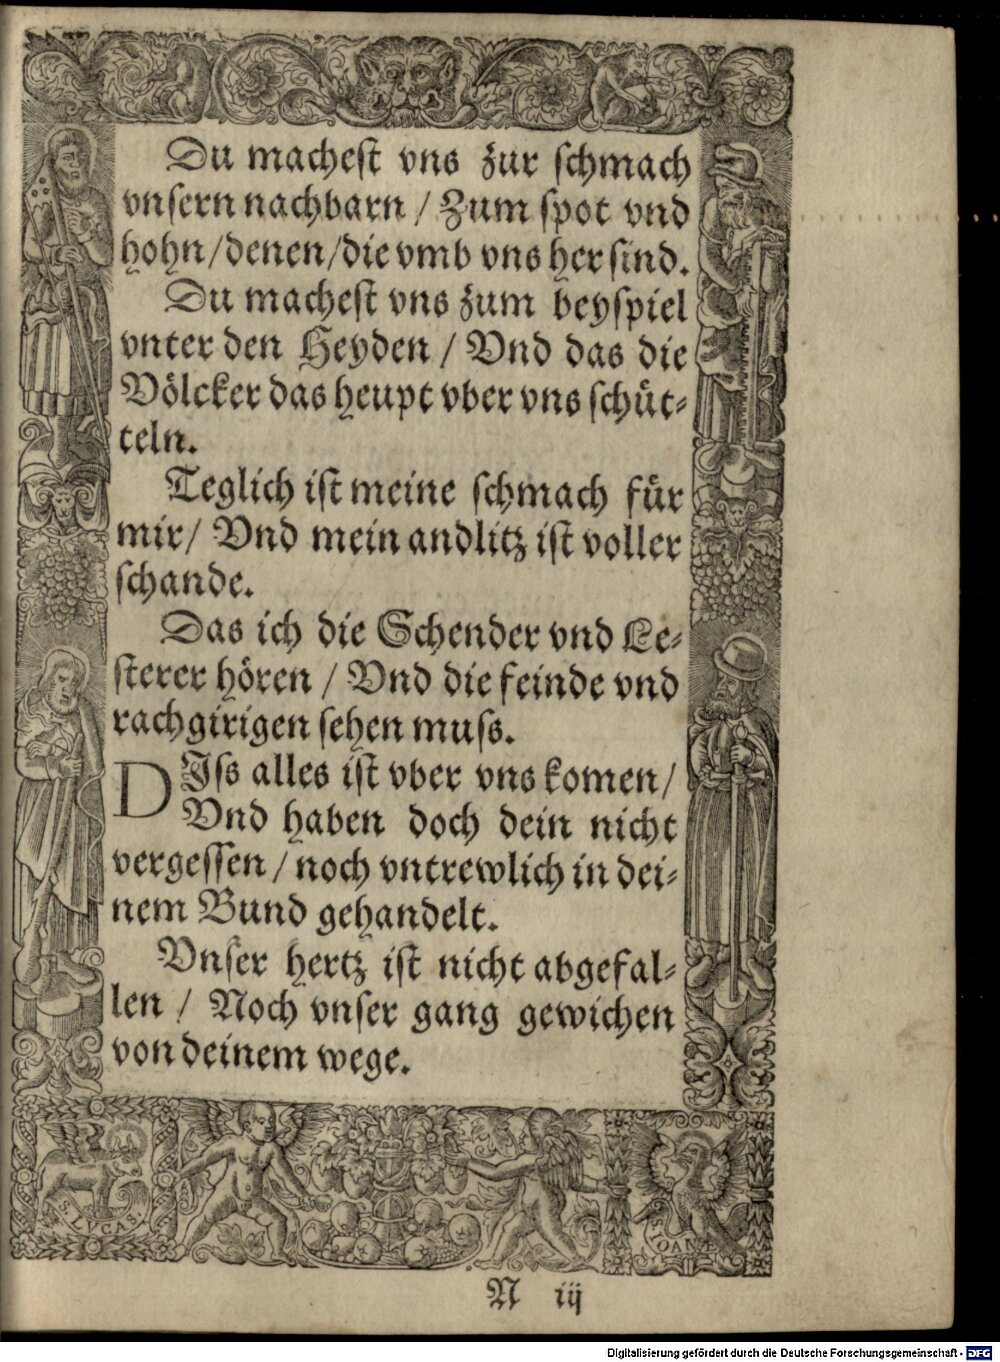 Du machest vns zur schmach
vnsern nachbarn / Zum spot vnd
hohn / denen / die vmb vns her sind.
Du machest vns zum beyspiel
vnter den Heyden / Vnd das die
Völcker das heupt vber vns schüt-
teln.
Teglich ist meine schmach für
mir / Vnd mein andlitz ist voller
schande.
Das ich die Schender vnd Le-
sterer hören / Vnd die feinde vnd
rachgirigen sehen muss.
DJss alles ist vber vns komen /
Vnd haben doch dein nicht
vergessen / noch vntrewlich in dei-
nem Bund gehandelt.
Vnser hertz ist nicht abgefal-
len / Noch vnser gang gewichen
von deinem wege.
S. LVCAS.
S. IOANE
N iij
Digitalisierung gefördert durch die Deutsche Forschungsgemeinschaft - DFG